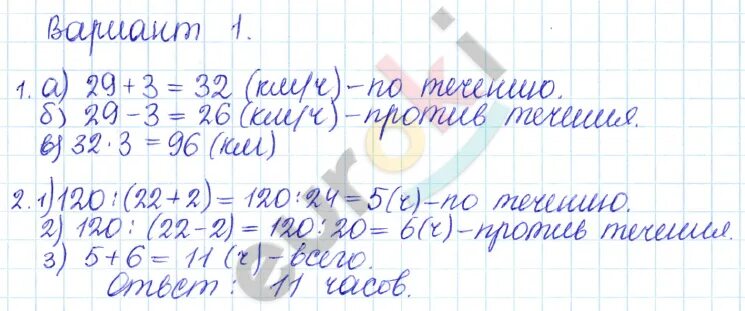 Вариант 1.
1. а) 29 + 3 = 32 (км/ч) – по течению.
б) 29 – 3 = 26 (км/ч) – против течения.
в) 32 · 3 = 96 (км)
2. 1) 120 : (22 + 2) = 120 : 24 = 5 (ч) – по течению.
2) 120 : (22 – 2) = 120 : 20 = 6 (ч) – против течения.
3) 5 + 6 = 11 (ч) – всего.
Ответ : 11 часов.
euroki